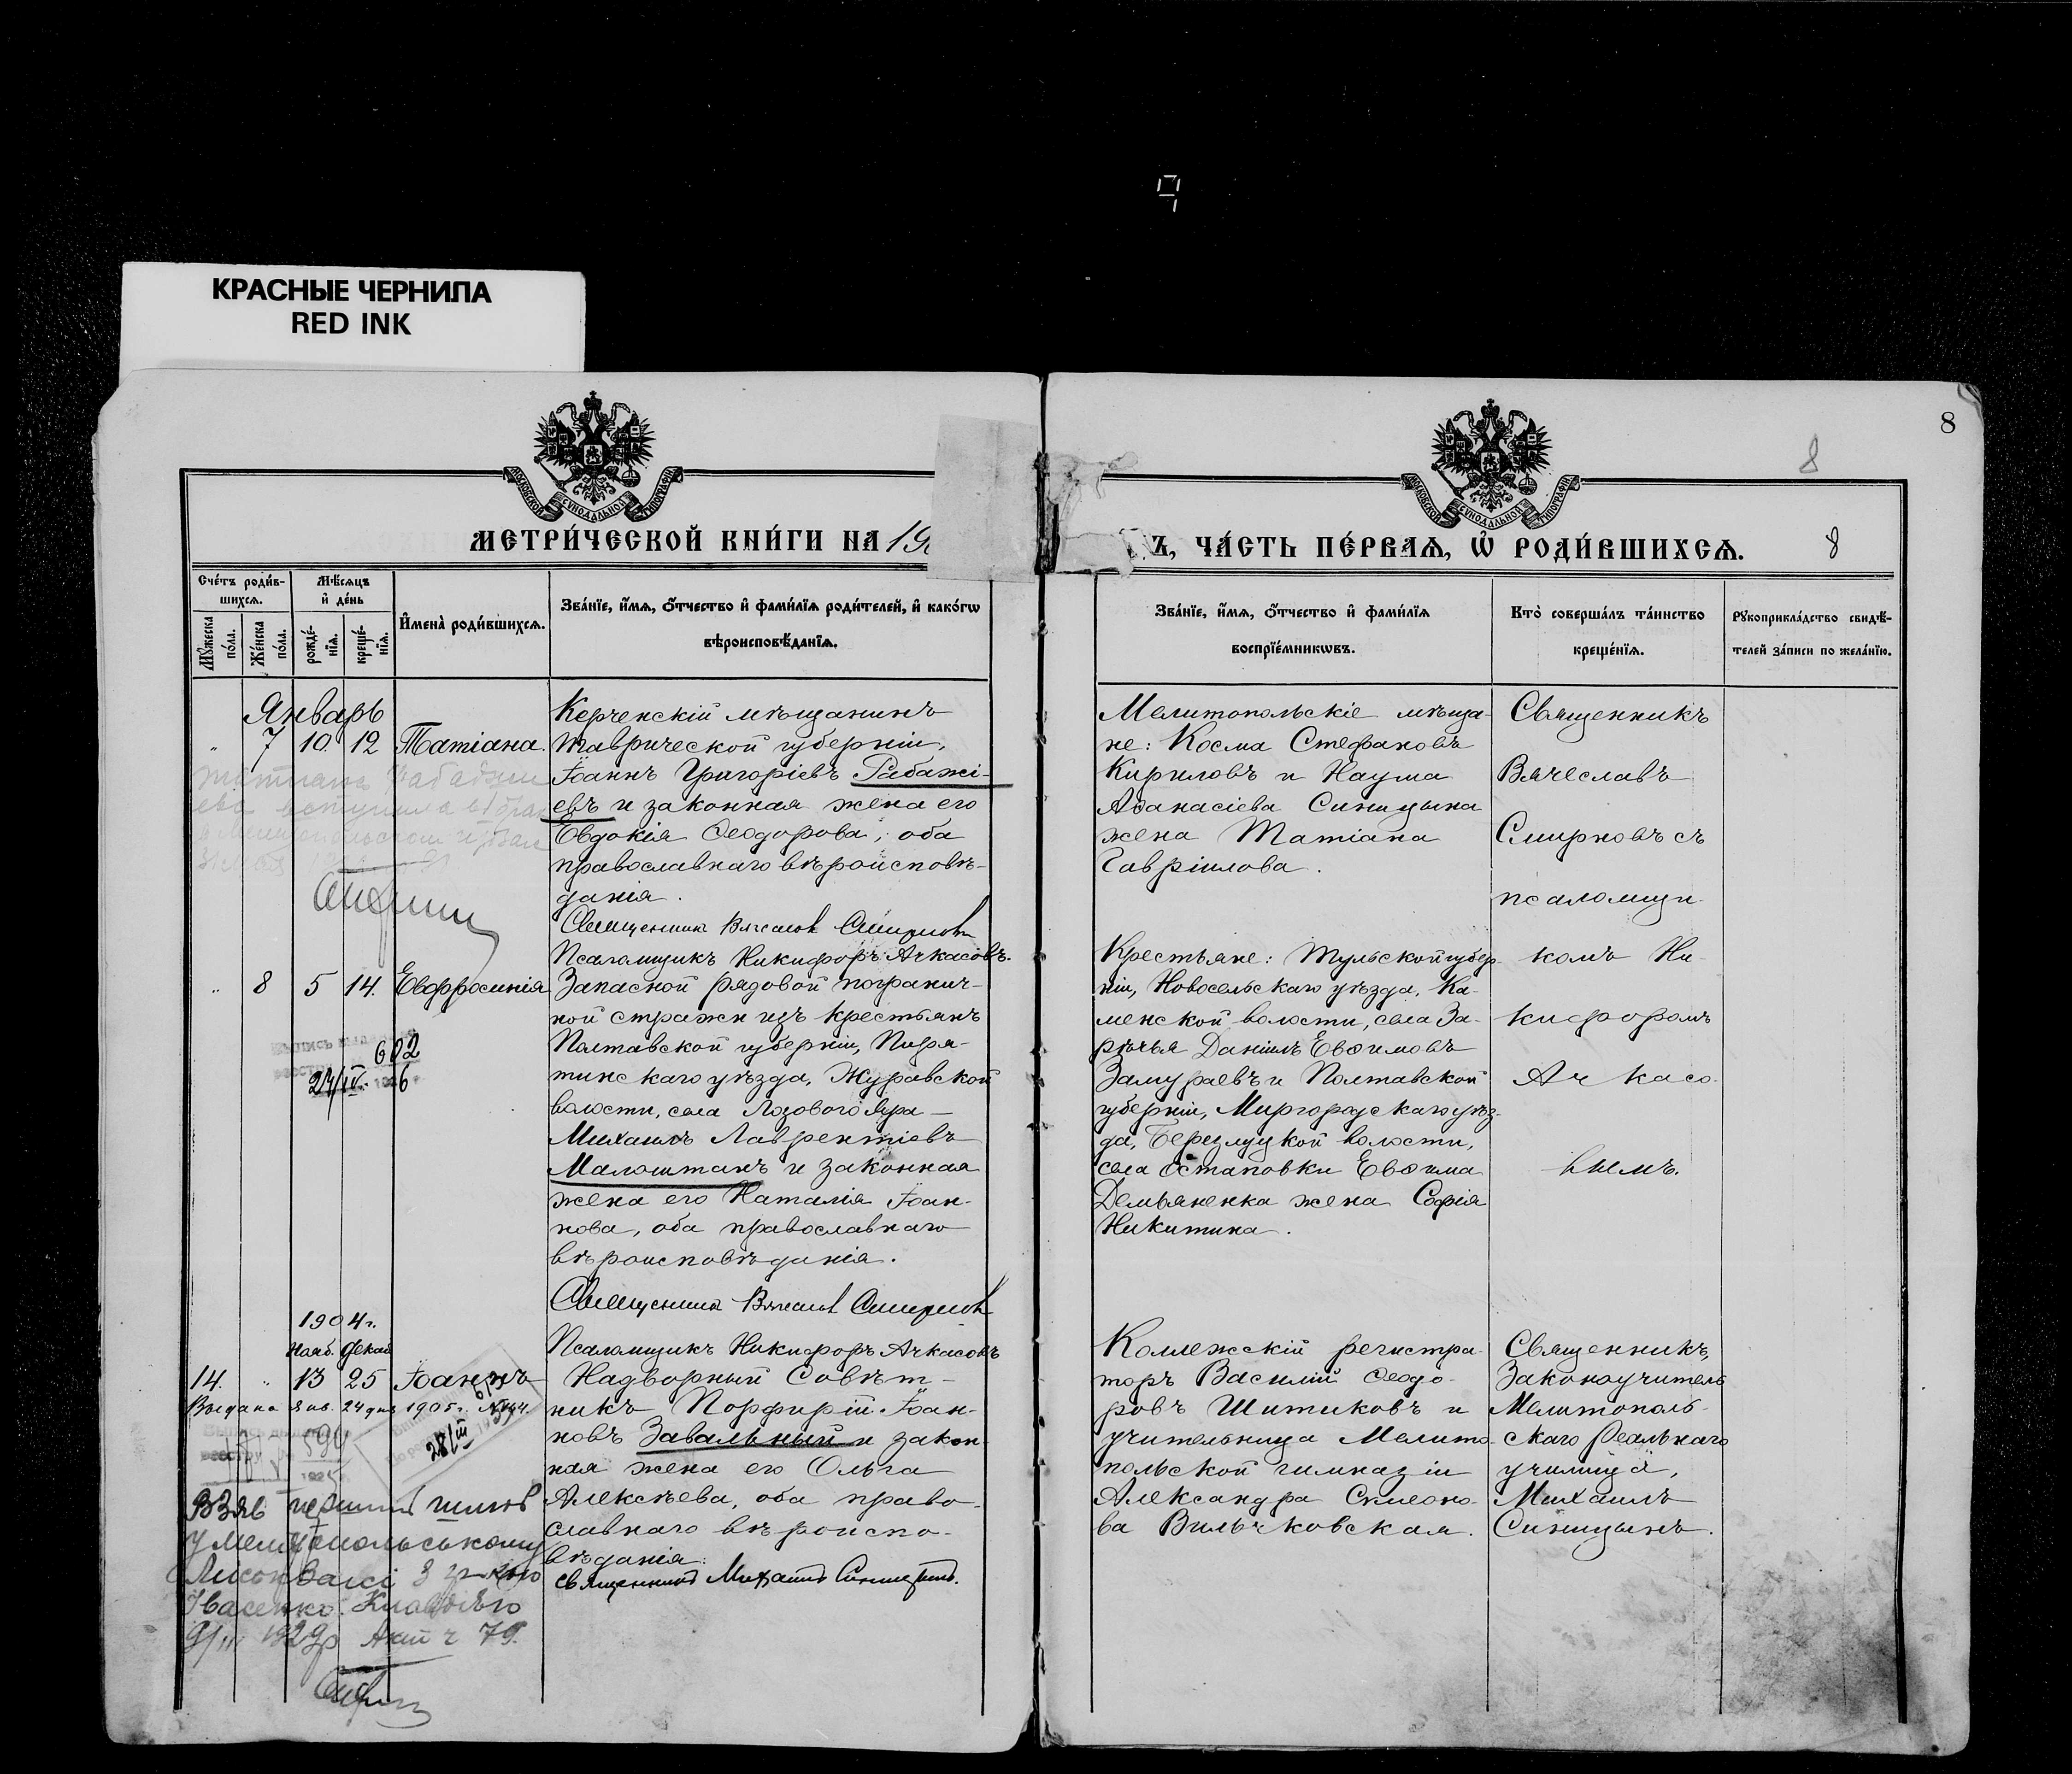 КРАСНЫЕ ЧЕРНИЛА
RED INK
8
8
МОСКОВСКОЙ СУНОДАЛЬНОЙ ТИПОГРАФІИ
МОСКОВСКОЙ СУНОДАЛЬНОЙ ТИПОГРАФІИ
МЕТРИ́ЧЕСКОЙ КНИ́ГИ НА 190
Ъ, ЧА́СТЬ ПЕ́РВАѦ, Ѡ҆ РОДИ́ВШИХСѦ.
8
Сче́тъ роди́в-
шихсѧ.
Мꙋ́жеска по́ла.
Же́нска по́ла.
Мѣ́сѧцъ
и҆ де́нь
рожде́-
нїѧ.
креще́-
нїѧ.
И҆мена̀ роди́вшихсѧ.
Зва́нїе, и҆́мѧ, ѻ҆́тчество и҆ фами́лїѧ роди́телей, и҆ како́гѡ
вѣроисповѣ́данїѧ.
Зва́нїе, и҆́мѧ, ѻ҆́тчество и҆ фами́лїѧ
воспрїе́мникѡвъ.
Кто̀ соверша́лъ та́инство
креще́нїѧ.
Рꙋкоприкла́дство свидѣ́-
телей за́писи по жела́нїю.
Январь
" 7 10 12 Татіана.
Керченскій мѣщанинъ
Таврической губерніи,
Іоаннъ Григоріевъ Рабажі-
евъ и законная жена его
Евдокія Ѳеодорова, оба
православнаго вѣроисповѣ-
данія.
Священникъ Вячеславъ Смирновъ
Псаломщикъ Никифоръ Ачкасовъ.
Мелитопольскіе мѣща-
не: Косма Стефановъ
Кириловъ и Наума
Аѳанасіева Синицына
жена Татіана
Гавріилова.
Священникъ
Вячеславъ
Смирновъ съ
псаломщи-
комъ Ни-
кифоромъ
Ачкасо-
вымъ.
" 8 5 14. Евфросинія
602
24/IV 6
Запасной рядовой погранич-
ной стражи изъ крестьянъ
Полтавской губерніи, Пиря-
тинскаго уѣзда, Журавской
волости, села Лозового Яра —
Михаилъ Лаврентіевъ
Малоштанъ и законная
жена его Наталія Іоан-
нова, оба православнаго
вѣроисповѣданія.
Священникъ Вячеславъ Смирновъ
Псаломщикъ Никифоръ Ачкасовъ
Крестьяне: Тульской губер-
ніи, Новосельскаго уѣзда, Ка-
менской волости, села За-
рѣчья Даніилъ Евѳимовъ
Замураевъ и Полтавской
губерніи, Миргородскаго уѣз-
да, Березлуцкой волости,
села Остаповки Евѳима
Демьяненка жена Софія
Никитина.
1904 г.
Нояб. Декаб
14. " 13 25 Іоаннъ
Выдана янв. 24 дня 1905 г.
28/III
594
Надворный Совѣт-
никъ Порфирій Іоан-
новъ Завальный и закон-
ная жена его Ольга
Алексѣева, оба право-
славнаго вѣроиспо-
вѣданія.
священникъ Михаилъ Синицынъ.
Коллежскій регистра-
торъ Василій Ѳеодо-
ровъ Шитиковъ и
учительница Мелито-
польской гимназіи
Александра Симеоно-
ва Вильчковская.
Священникъ,
Законоучитель
Мелитополь-
скаго Реальнаго
училища,
Михаилъ
Синицынъ.
Взяв перший шлюб
у Мелітопольському
з
Івасенко
9/III 1929р Акт ч 79.